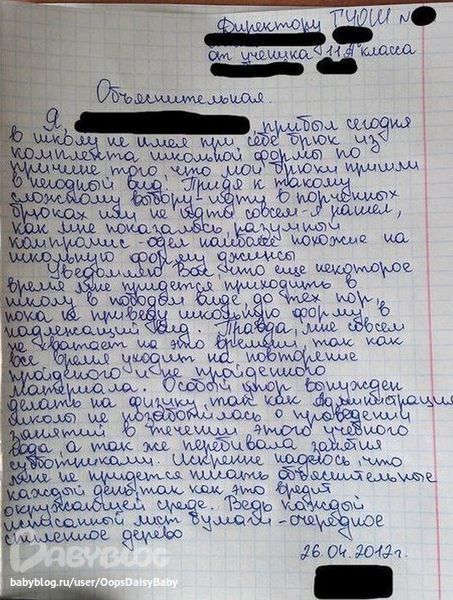 Директору ГУОШ №
от ученика 11 "А" класса
Объяснительная.
Я, , прибыл сегодня
в школу не имея при себе брюк из
комплекта школьной формы по
причине того, что мои брюки пришли
в негодный вид. Придя к такому
сложному выбору - идти в порченных
брюках или не идти совсем - я нашел,
как мне показалось, разумный
компромис - одел наиболее похожие на
школьную форму джинсы
Уведомляю Вас, что еще некоторое
время мне придется приходить в
школу в подобом виде, до тех пор,
пока не приведу школьную форму в
надлежащий вид. Правда, мне совсем
не хватает на это времени, так как
все время уходит на повторение
пройденого и не пройденного
материала. Особый упор вынужден
делать на физику так как Администрация
школы не позаботилась о проведении
занятий в течении этого учебного
года, а так же перебивала занятия
субботниками. Искренне надеюсь, что
мне не придется писать объяснительные
каждый день, так как это вредит
окружающей среде. Ведь каждый
исписанный лист бумаги - очередное
спиленное дерево
26.04.2012г.
BABYBLOG
babyblog.ru/user/OopsDaisyBaby